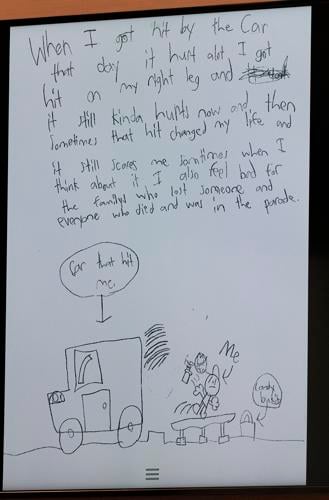 When I got hit by the Car
that day it hurt alot I got
hit on my right leg and
it still kinda hurts now and then
sometimes that hit changed my life and
it still scares me somtimes when I
think about it I also feel bad for
the familys who lost someone and
everyone who died and was in the parade.
Car that hit
me.
Me
candy